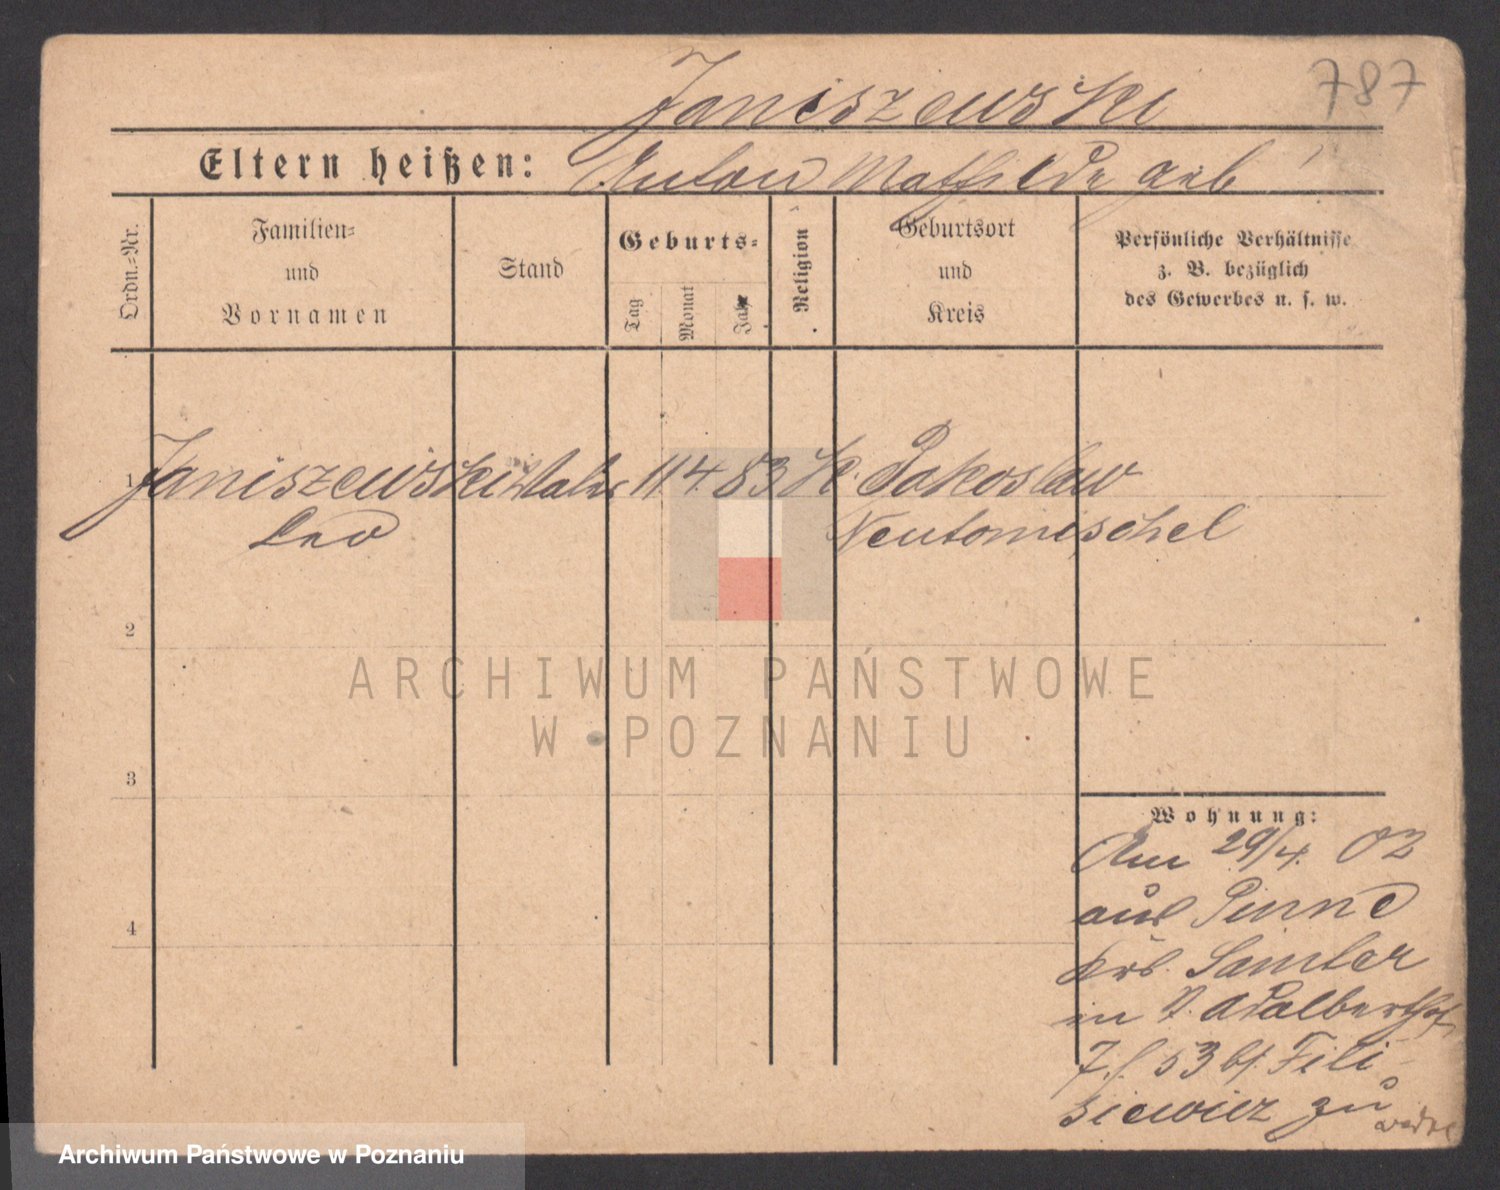 787
Janiszewski
Eltern heißen: Anton Mathilde geb
Ordn.=Nr.
Familien=
und
Vornamen
Stand
Geburts=
Tag
Monat
Jahr
Religion
Geburtsort
und
Kreis
Persönliche Verhältnisse
z. B. bezüglich
des Gewerbes u. s. w.
1 Janiszewski Maler 11 4 83 K. Pakoslaw
Leo Neutomischel
2
3
4
Wohnung:
Am 29/4. 02
aus Pinne
Krs. Samter
in St. Adalbertstr
53 bei Fili-
siewicz zu
ARCHIWUM PAŃSTWOWE
W POZNANIU
Archiwum Państwowe w Poznaniu